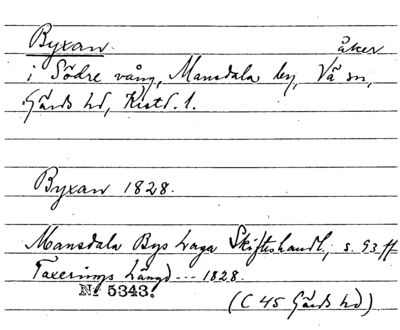 Byxan. åker
i Södre vång, Mansdala by, Vä sn,
Gärds hd, Kristd. l.
Byxan 1828.
Mansdala Bys Laga Skiftshandl., s. 93 ff
Taxerings Längd --- 1828.
No 5343.
(C 45 Gärds hd)